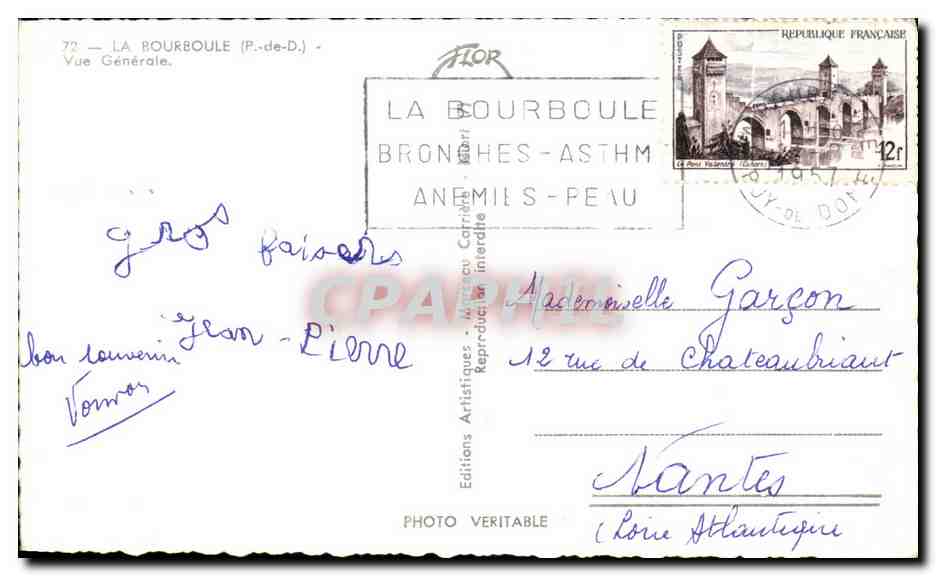 72 — LA BOURBOULE (P.-de-D.) -
Vue Générale.
FLOR
LA BOURBOULE
BRONCHES - ASTHM
ANEMIES - PEAU
REPUBLIQUE FRANÇAISE
POSTES
Le Pont Valentré (Cahors)
12f
1957
PUY-DE DOME
gros baisers
Jean-Pierre
bon souvenir
Editions Artistiques - Marceau Carrière -
Reproduction interdite
CPAPHIL
Mademoiselle Garçon
12 rue de Chateaubriant
Nantes
(Loire Atlantique
PHOTO VERITABLE